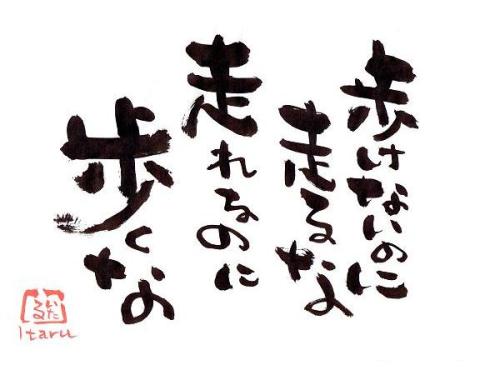 歩けないのに
走るな
走れるのに
歩くな
いたる
Itaru